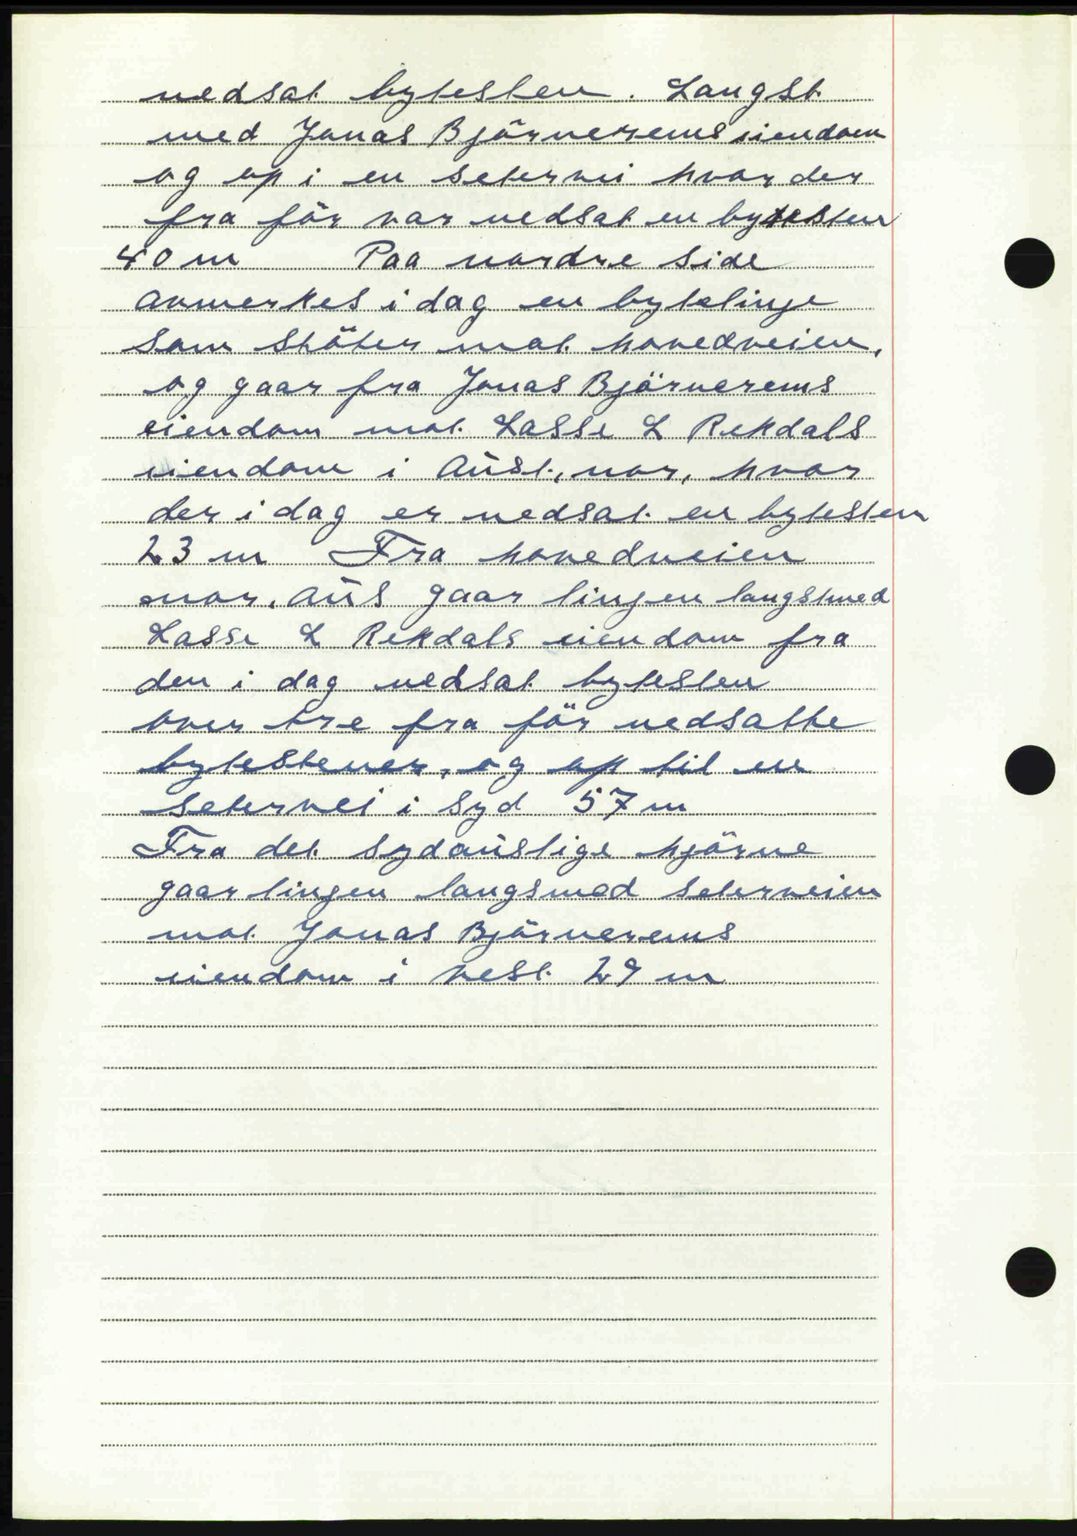 nedsat bytesten. Langst
med Jonas Björnerems eiendom
og op i en setervei hvor der
fra för var nedsat en bytesten
40 m Paa nordre side
anmerkes i dag en bytelinje
som stöter mot hovedveien,
og gaar fra Jonas Björnerems
eiendom mot Lasse L Rekdals
eiendom i Aust, nor, hvor
der i dag er nedsat en bytesten
23 m Fra hovedveien
nor, aus gaar linjen langsmed
Lasse L Rekdals eiendom fra
den i dag nedsat bytesten
over tre fra för nedsatte
bytestener, og op til en
setervei i syd 57 m
Fra det sydaustige hjörne
gaar linjen langsmed seterveien
mot Jonas Björnerems
eiendom i vest 29 m